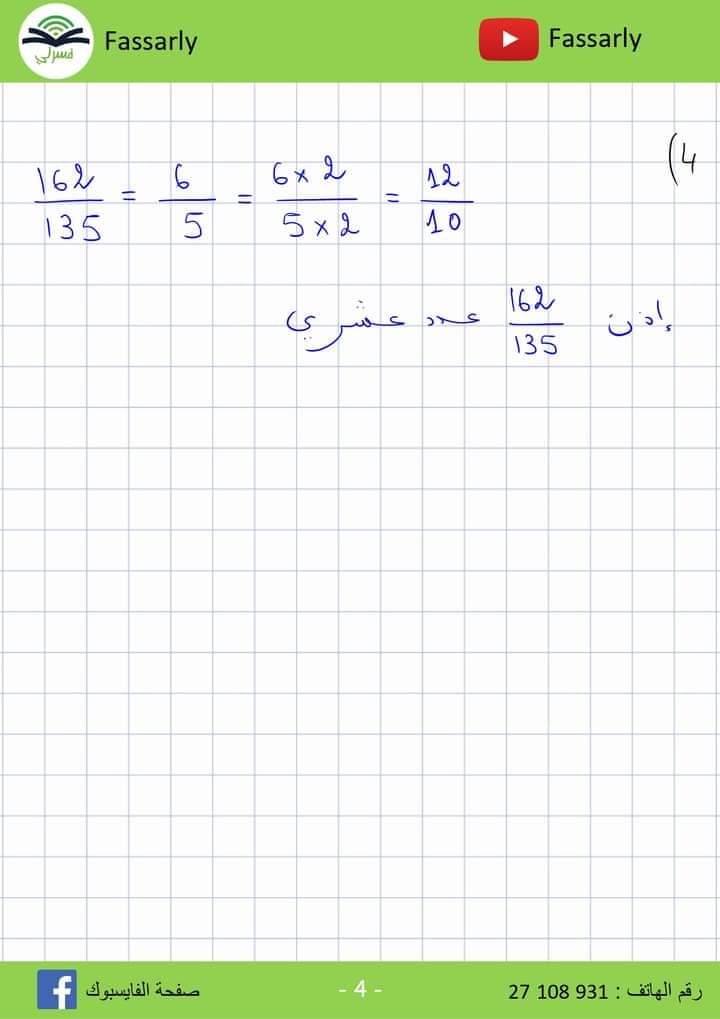 Fassarly
فسرلي
Fassarly
4)
162/135 = 6/5 = 6×2/5×2 = 12/10
إذن 162/135 عدد عشري
صفحة الفايسبوك
- 4 -
رقم الهاتف : 931 108 27